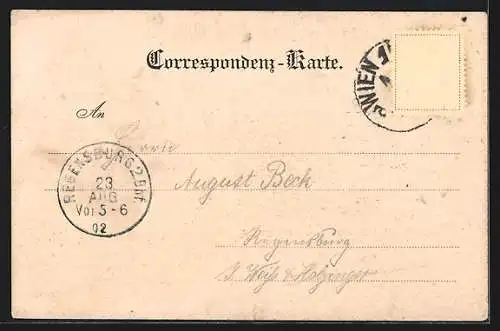 Correspondenz-Karte.
WIEN 1
An
Herrn
August Beck
REGENSBURG 2 Bhf.
23
AUG
Vor 5-6
02
Regensburg